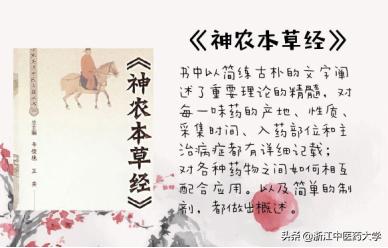 《神农本草经》
书中以简练古朴的文字阐
述了重要理论的精髓，对
每一味药的产地、性质、
采集时间、入药部位和主
治病症都有详细记载；
对各种药物之间如何相互
配合应用。以及简单的制
剂，都做出概述。
《神农本草经》
头条 @浙江中医药大学